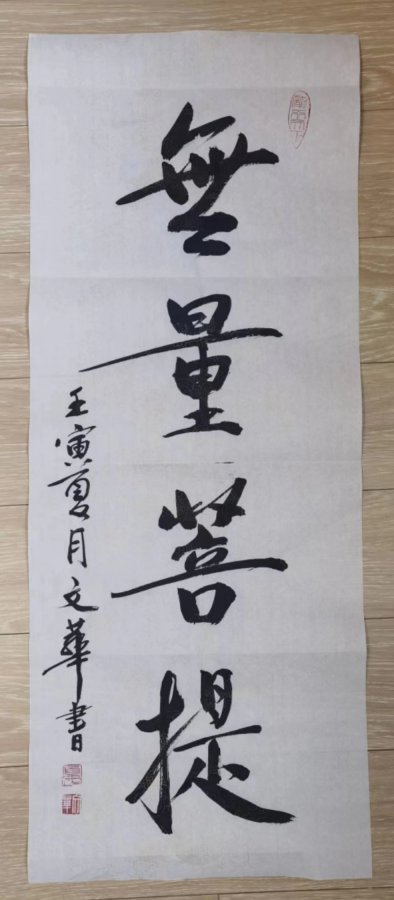 無量菩提
壬寅夏月文華書